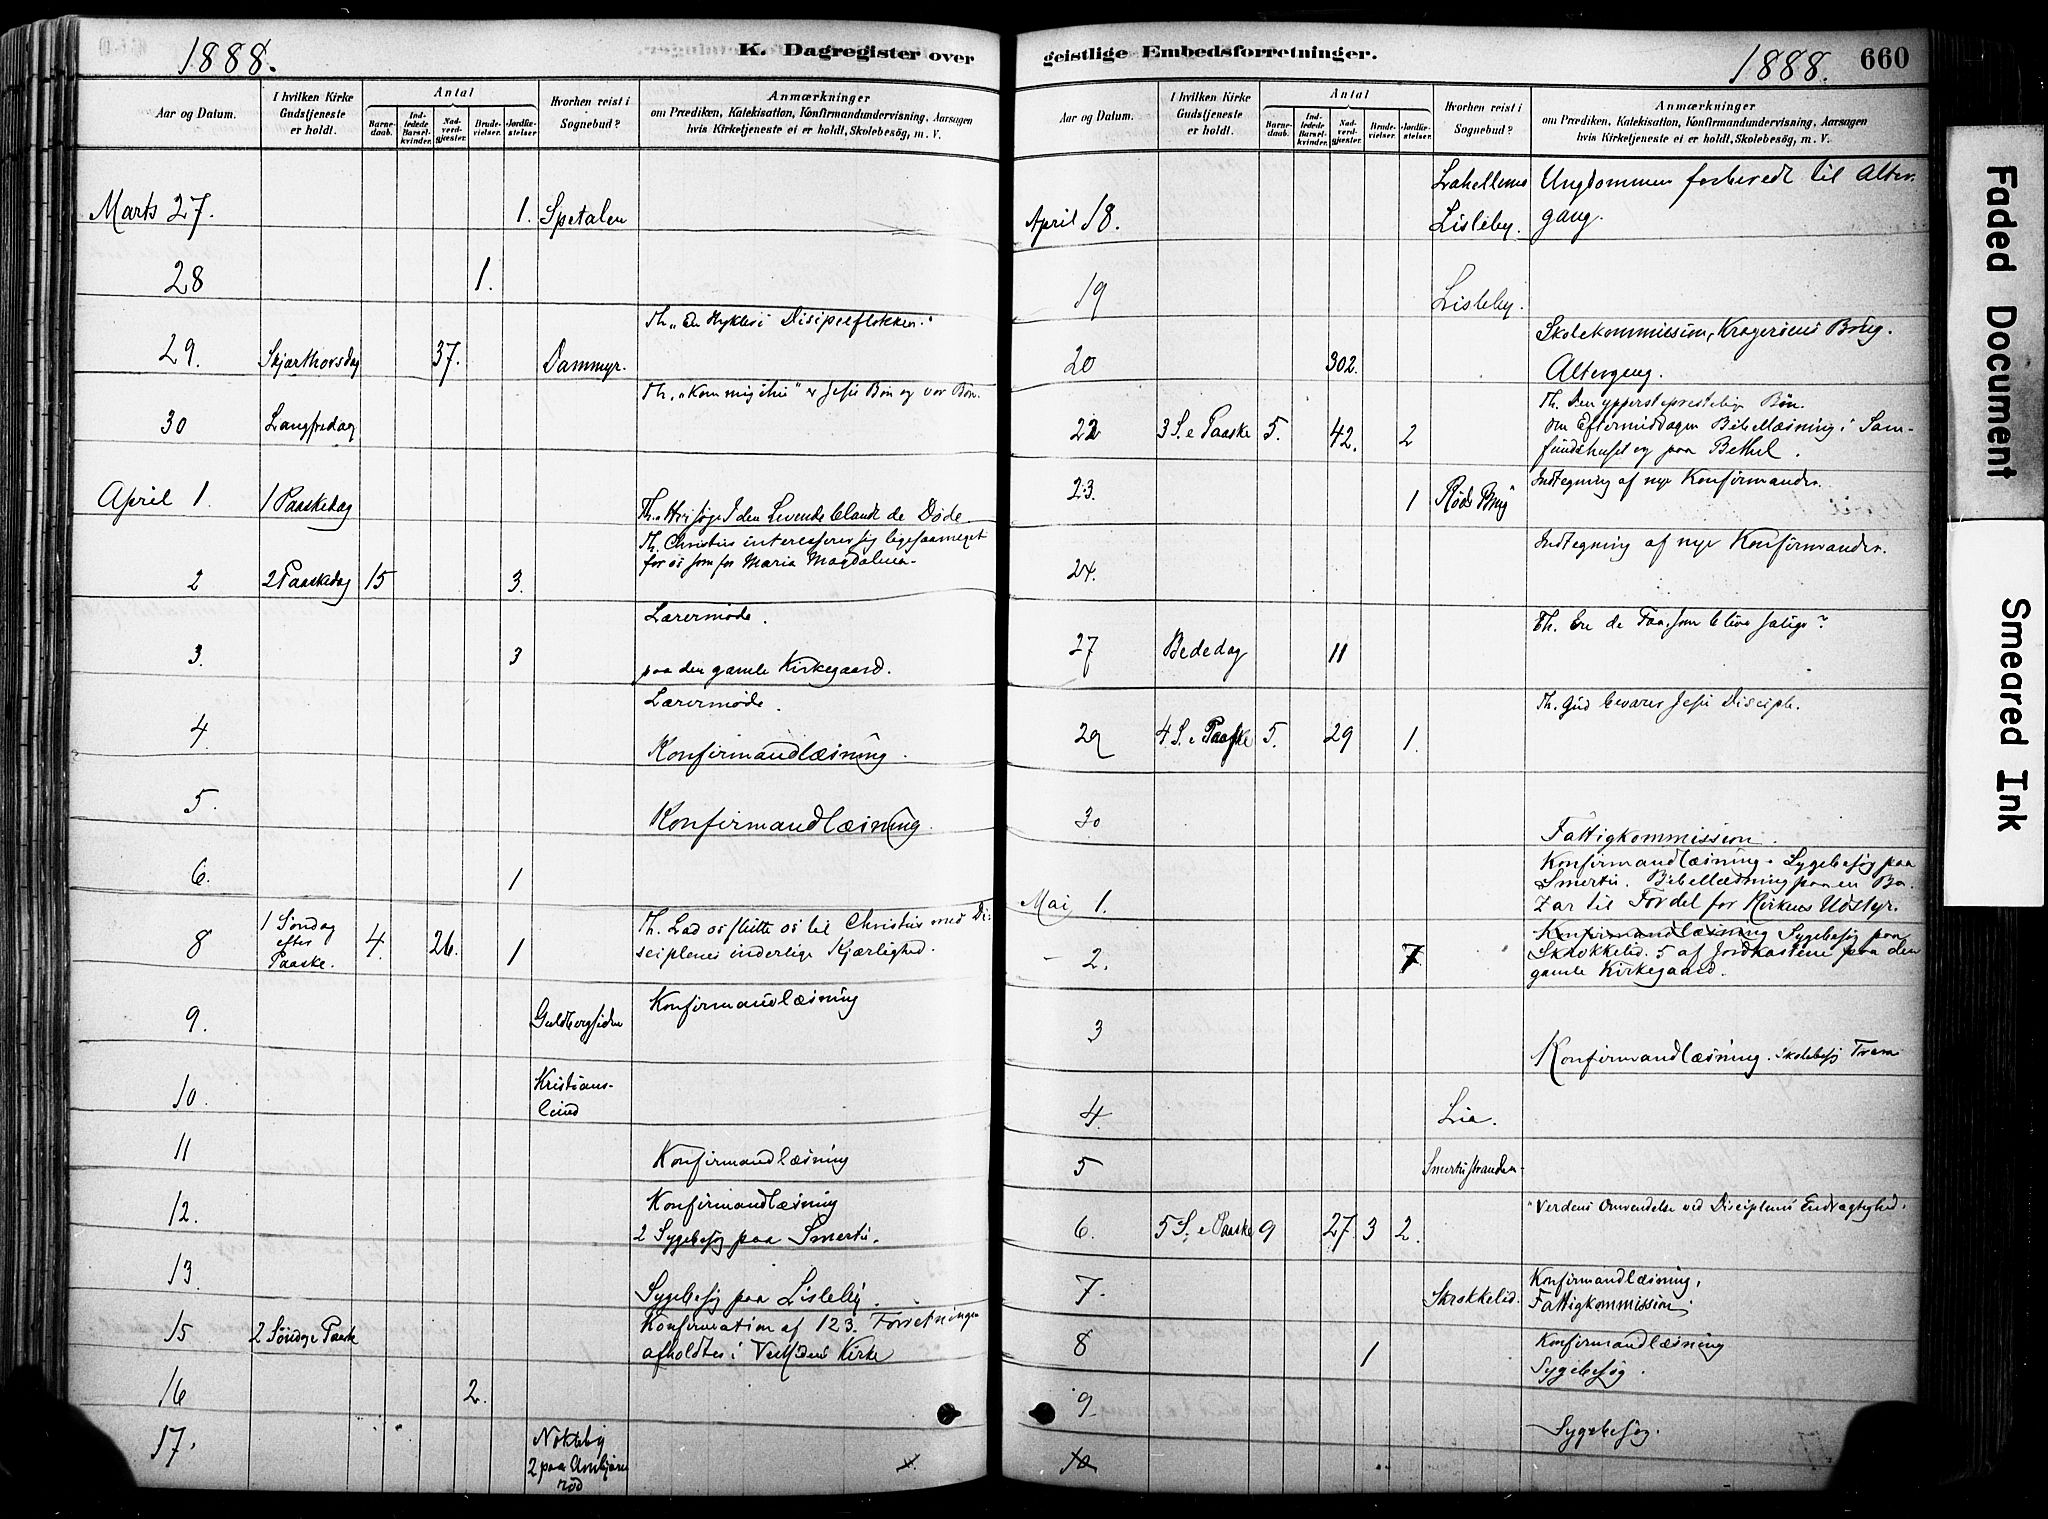 1888.
K. Dagregister over
Aar og Datum.
I hvilken Kirke Gudstjeneste er holdt.
Antal
Barnedaab.
Indledede Barselkvinder.
Nadverdgjester.
Brudevielser.
Jordfæstelser.
Hvorhen reist i Sognebud?
Anmærkninger
om Prædiken, Katekisation, Konfirmandundervisning, Aarsagen
hvis Kirketjeneste ei er holdt, Skolebesøg, m. V.
Marts 27. 1. Spetalen
28 1.
Th. "En Hykler i Disipelflokken."
29. Skjærthorsdag 37. Dammyr.
Th. "Kom mig ihu" er Jesu Bøn og vor Bøn.
30 Langfredag
April 1 1 Paaskedag Th. Hvi søge I den Levende blandt de Døde
Th. Christus interesserer sig ligesaameget
for os som for Maria Magdalena.
2 2 Paaskedag 15 3.
Lærermøde.
3. 3 paa den gamle Kirkegaard.
Lærermøde.
4 Konfirmandlæsning.
5. Konfirmandlæsning.
6. 1
8 1 Søndag efter Paaske. 4. 26. 1 Th. Lad os slutte os til Christus med Di-
sciplenes inderlige Kjærlighed.
9. Guldbergsiden Konfirmandlæsning
10. Kristians-
lund
11 Konfirmandlæsning
12. Konfirmandlæsning
2 Sygebesøg paa Smertu.
13 Sygebesøg paa Lisleby.
15 2 Søndag e Paaske Konfirmation af 123. Forretningen
afholdtes i Vestsidens Kirke
16 2.
17. Nøkleby
2 paa
rød
geistlige Embedsforretninger.
1888. 660
Aar og Datum.
I hvilken Kirke Gudstjeneste er holdt.
Antal
Barnedaab.
Indledede Barselkvinder.
Nadverdgjester.
Brudevielser.
Jordfæstelser.
Hvorhen reist i Sognebud?
Anmærkninger
om Prædiken, Katekisation, Konfirmandundervisning, Aarsagen
hvis Kirketjeneste ei er holdt, Skolebesøg, m. V.
Ungdommen forberedt til Alter-
April 18. Lisleby. gang.
19 Lisleby.
Skolekommission, Kragerøens Brug.
20 302. Altergang.
Th. Den ypperstepræstelige Bøn.
22 3 S. e Paaske 5. 42. 2 om Eftermiddagen Bibellæsning i Sam-
fundshuset og paa Bethel.
23. 1 Røds Brug Indtegning af nye Konfirmander.
24. Indtegning af nye Konfirmander.
27 Bededag 11 Th. Ere de Faa, som blive salige?
29 4 S. e Paaske 5. 29 1. Th. Gud bevarer Jesu Disciple.
30 Fattigkommission.
Konfirmandlæsning. Sygebesøg paa
Smertu. Bibellæsning paa en Ba-
Mai 1. zar til Fordel for Kirkens Udstyr.
Konfirmandlæsning Sygebesøg paa
- 2. 7 Skrokkelid. 5 af Jordkastene paa den
gamle Kirkegaard.
3 Konfirmandlæsning. Skolebesøg
4. Lia.
5 Smertustranden
6. 5 S. e Paaske 9 27 3 2. "Verdens Omvendelse ved Disciplenes Endrægtighed.
7. Skrokkelid. Konfirmandlæsning,
Fattigkommission.
8 1 Konfirmandlæsning
Sygebesøg.
9 Sygebesøg.
10
Faded Document
Smeared Ink